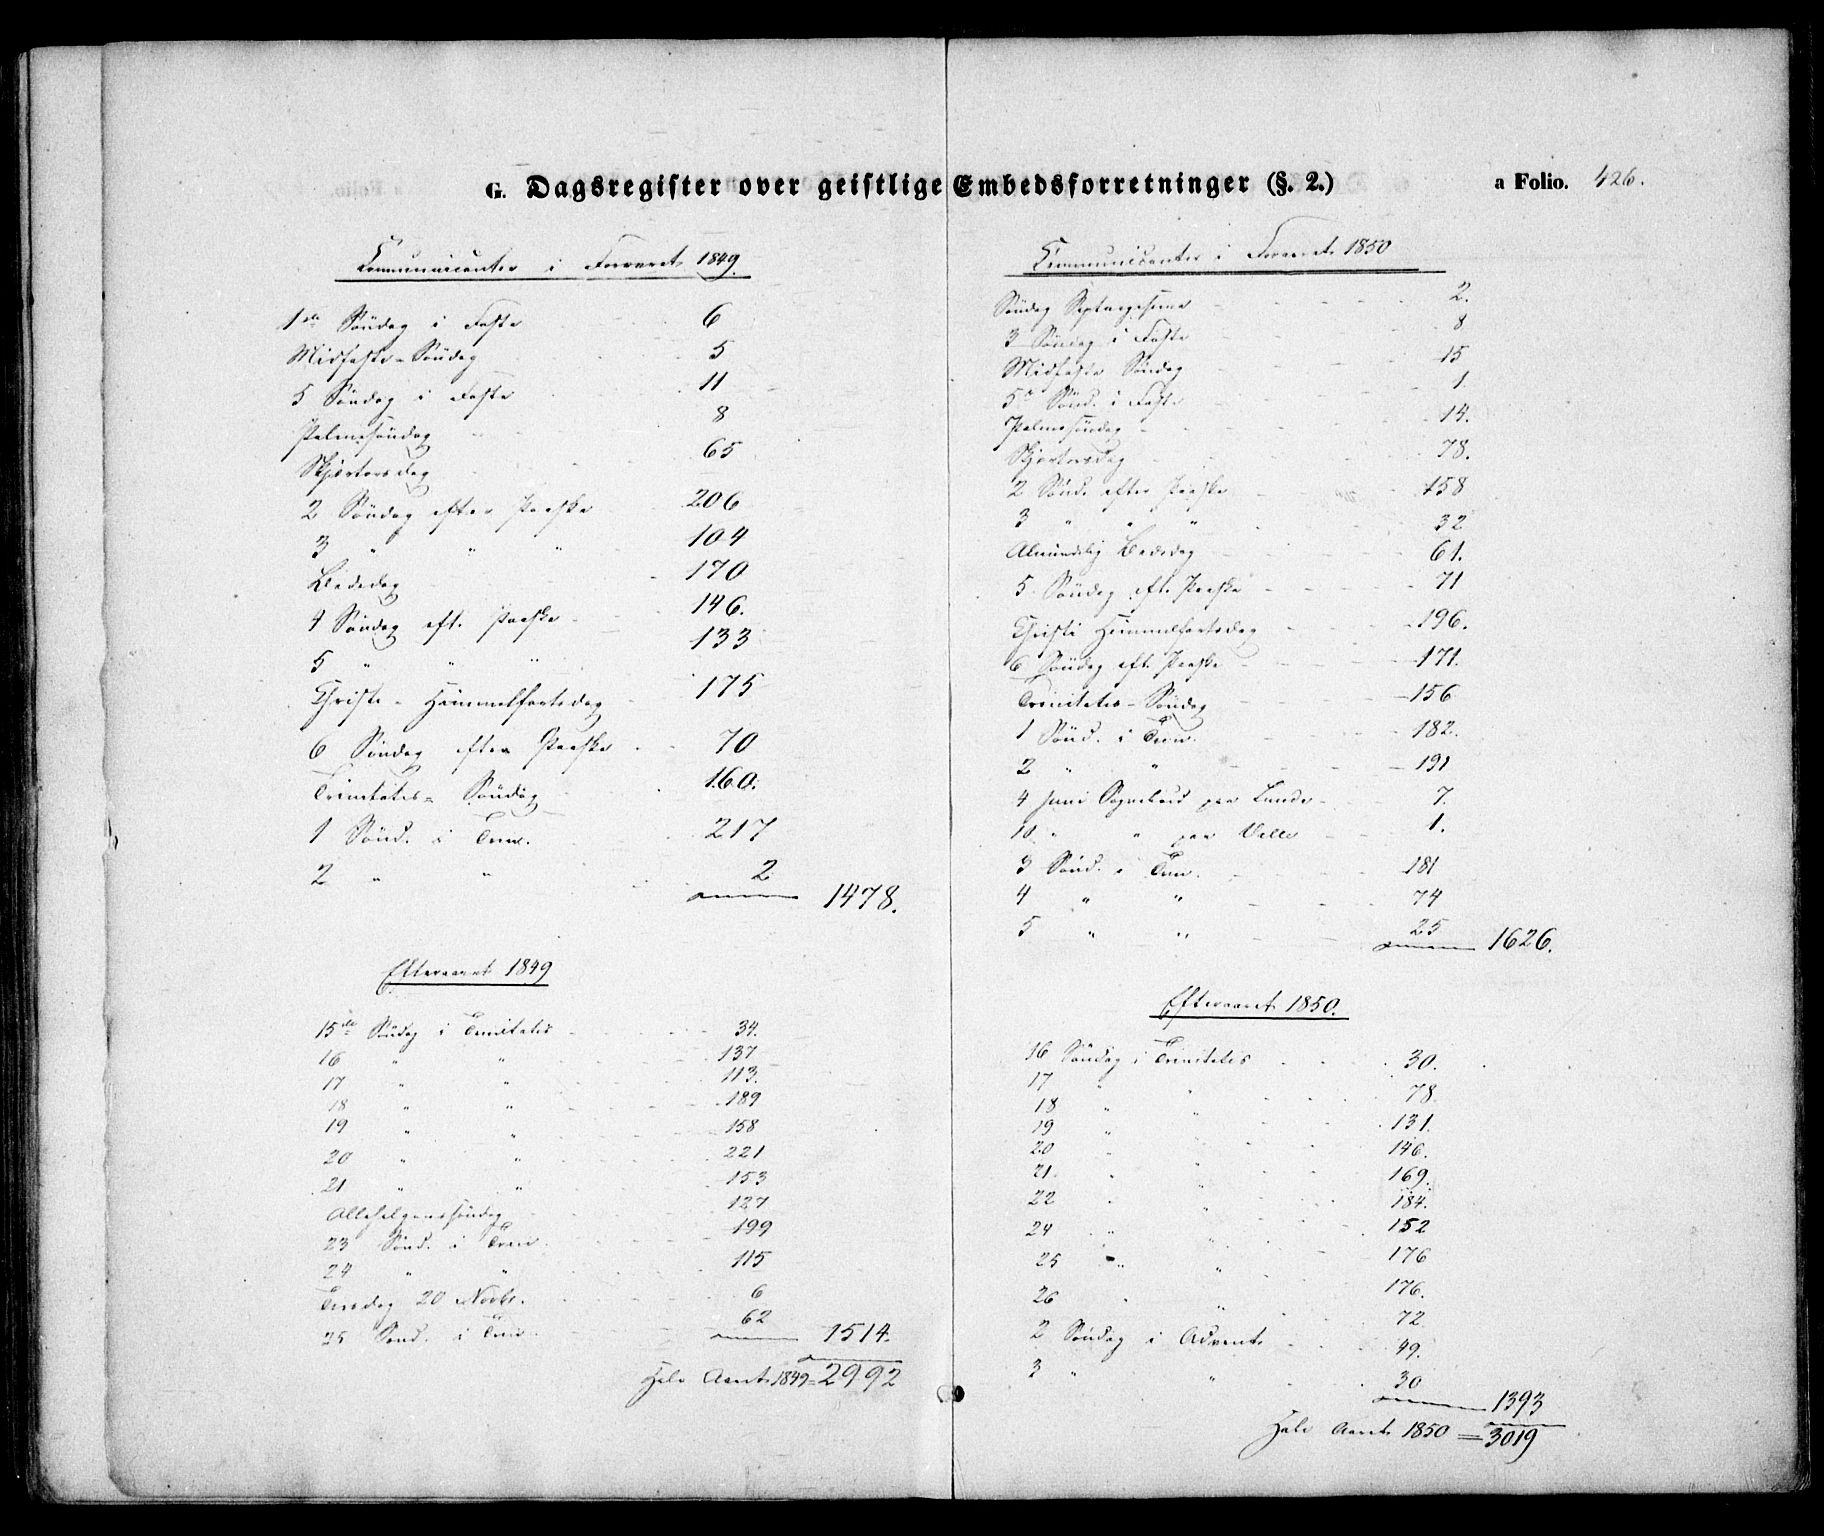 G. Dagsregister over geistlige Embedsforretninger (§. 2.) a Folio. 426.
Communicanter i Foraaret 1849
1ste Söndag i Faste 6
Midfaste-Söndag 5
5 Söndag i Faste 11
Palmesöndag 8
Skjærtorsdag 65
2 Söndag efter Paaske 206
3 " " " 104
Bededag 170
4 Söndag eft. Paaske 146.
5 " " " 133
Christi-Himmelfartsdag 175
6 Söndag efter Paaske 70
Trinitatis-Söndag 160.
1 Sönd. i Trin. 217
2 " " 2 1478.
Efteraaret 1849
15de Söndag i Trinitatis 34.
16 " " 137
17 " " 113.
18 " " 189
19 " " 158
20 " " 221
21 " " 153
Allehelgenssöndag 127
23 Sönd. i Trin. 199
24 " " 115
Tirsdag 20 Novbr. 6
25 Sönd. i Trin. 62 1514.
Hele Aaret 1849 = 2992
Communicanter i Foraaret 1850
Söndag Septuagesima 2.
3 Söndag i Faste 8
Midfaste Söndag 15
5te Sönd. i Faste 1
Palmesöndag 14.
Skjærtorsdag 78.
2 Sönd. efter Paaske 158
3 " " " 32
Almindelig Bededag 61.
5 Söndag eft. Paaske 71
Christi Himmelfartsdag 196.
6 Söndag eft. Paaske 171.
Trinitatis-Söndag 156
1 Sönd. i Trin. 182.
2 " " 191
4 Juni Sognebud paa Lunde 7.
10 " " paa Valle 1.
3 Sönd. i Trin. 181
4 " " 74
5 " " 25 1626.
Efteraaret 1850.
16 Söndag i Trinitatis 30.
17 " " 78
18 " " 131.
19 " " 146.
20 " " 169.
21 " " 184.
22 " " 152
24 " " 176
25 " " 176.
26 " " 72
2 Söndag i Advent 49.
3 " " 30 1393
Hele Aaret 1850 = 3019